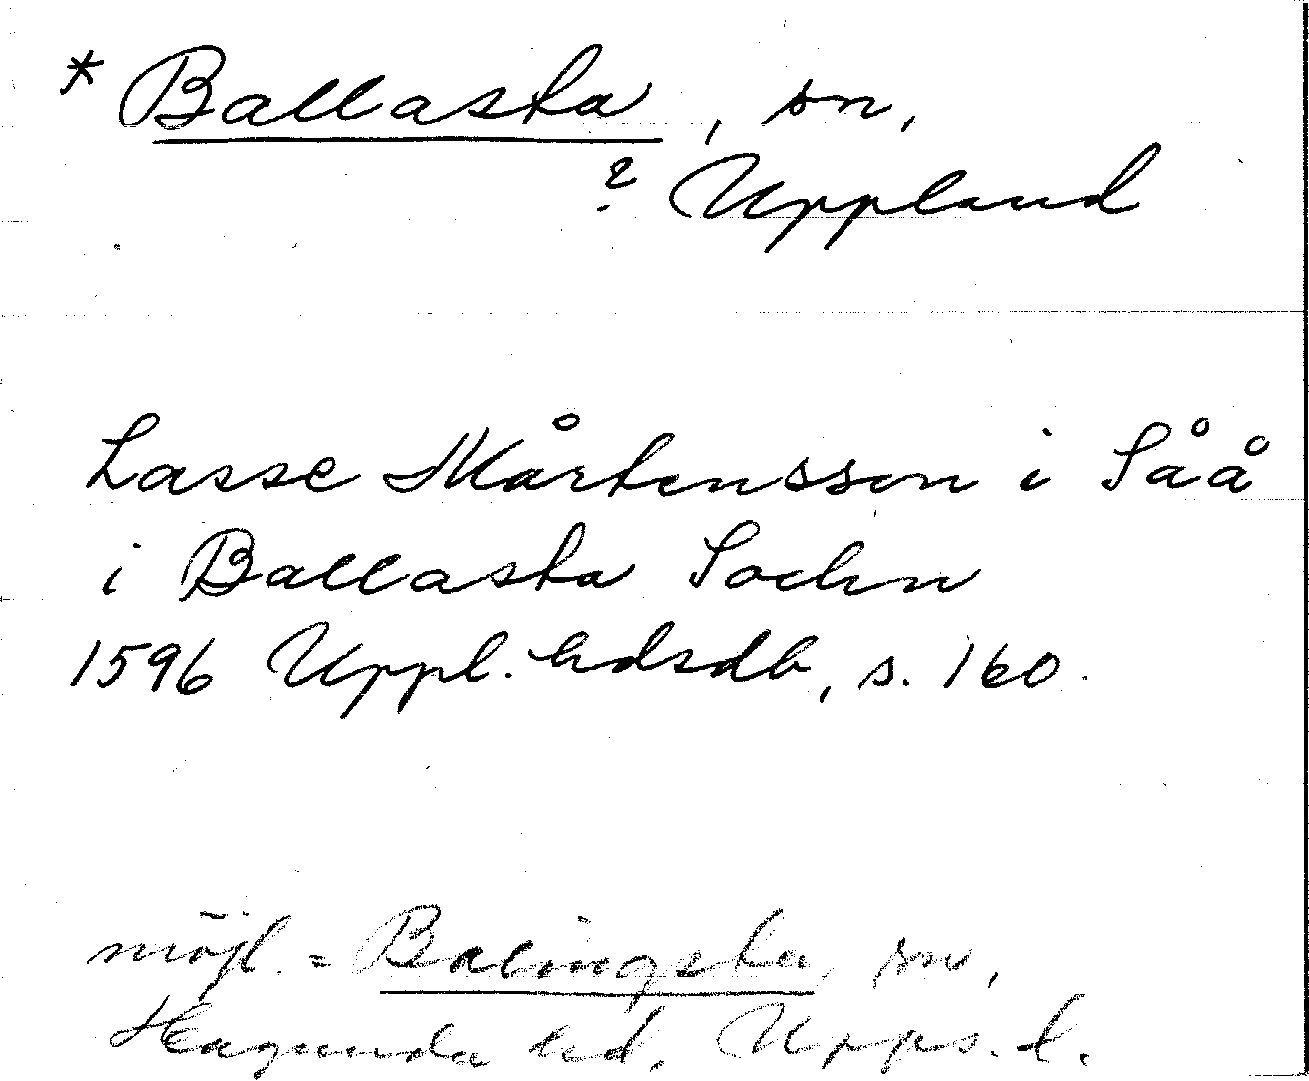 * Ballasta, sn,
? Uppland
Lasse Mårtensson i Såå
i Ballasta Sochn
1596 Uppl. hdsdb, s. 160.
möjl. = Balingsta, sn,
Hagunda hd, Upps. l.